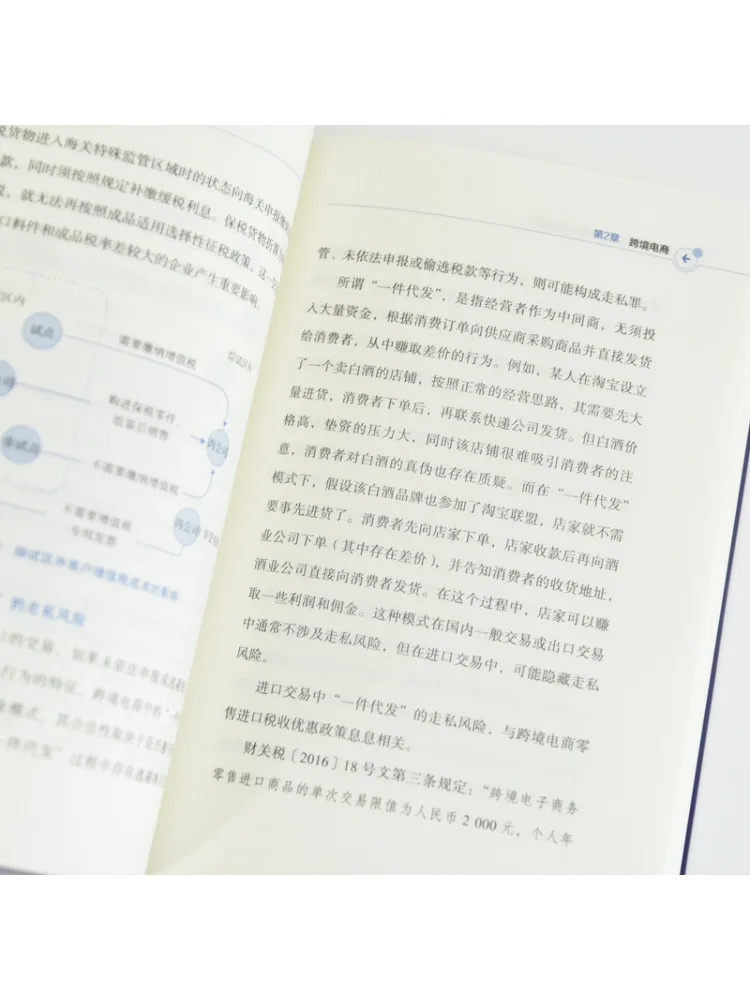 货物进入海关特殊监管区域时的状态向海关申报
款,同时须按照规定补缴缓税利息。保税货物
就无法再按照成品适用选择性征税政策。这一
口料件和成品税率差较大的企业产生重要影响。
区内
试点
需要缴纳增值税
公司
购进保税零件,
组装后销售
丙公司
非试点
不需要缴纳增值税
不需要增值税
专用发票
丙公司
跨走私风险
的交易,如果未依法申报或
行为的特征,跨境电商中的“
模式,其合法性取决于是否
第2章 跨境电商
管、未依法申报或偷逃税款等行为,则可能构成走私罪。
所谓“一件代发”,是指经营者作为中间商,无须投
入大量资金,根据消费订单向供应商采购商品并直接发货
给消费者,从中赚取差价的行为。例如,某人在淘宝设立
了一个卖白酒的店铺,按照正常的经营思路,其需要先大
量进货,消费者下单后,再联系快递公司发货。但白酒价
格高,垫资的压力大,同时该店铺很难吸引消费者的注
意,消费者对白酒的真伪也存在质疑。而在“一件代发”
模式下,假设该白酒品牌也参加了淘宝联盟,店家就不需
要事先进货了。消费者先向店家下单,店家收款后再向酒
业公司下单(其中存在差价),并告知消费者的收货地址,
酒业公司直接向消费者发货。在这个过程中,店家可以赚
取一些利润和佣金。这种模式在国内一般交易或出口交易
中通常不涉及走私风险,但在进口交易中,可能隐藏走私
风险。
进口交易中“一件代发”的走私风险,与跨境电商零
售进口税收优惠政策息息相关。
财关税〔2016〕18 号文第三条规定:“跨境电子商务
零售进口商品的单次交易限值为人民币 2 000 元,个人年